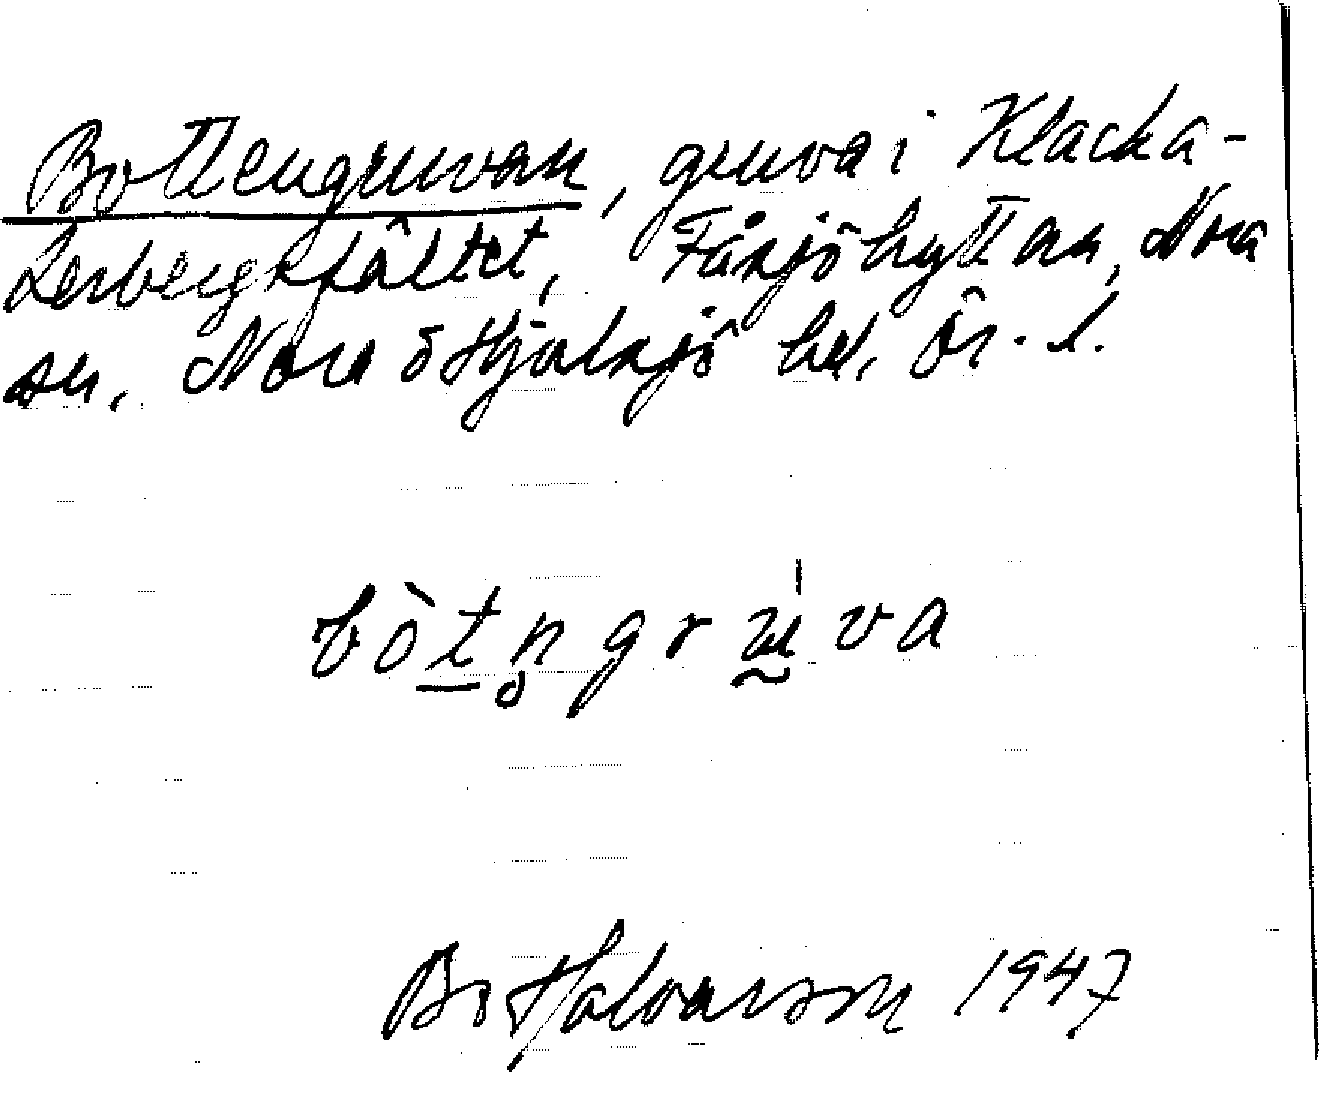 Bottengruvan, gruva i Klacka-
Lerbergsfältet, Fåsjöhyttan, Nora
sn, Nora o Hjulsjö hd, Ör. l.
bòt̲n̥grṵ̍va
Bo Halvarsson 1947